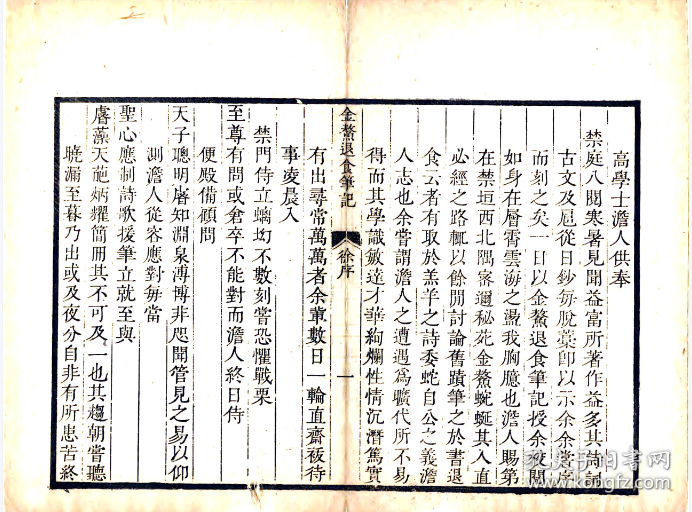 高學士澹人供奉
禁庭八閱寒暑見聞益富所著作益多其
古文及扈從日鈔每脫藁卽以示余余嘗序
而刻之矣一日以金鰲退食筆記授余披閱
如身在層霄雲海之盪我胸臆也澹人賜第
在禁垣西北隅密邇秘苑金鰲蜿蜒其入直
必經之路輒以餘閒討論舊蹟筆之於書退
食云者有取於羔羊之詩委蛇自公之義澹
人志也余嘗謂澹人之遭遇爲曠代所不易
得而其學識敏達才華絢爛性情沉潛篤實
金鰲退食筆記
徐序
一
有出尋常萬萬者余輩數日一輪直齋祓待
事凌晨入
禁門侍立螭㘭不數刻嘗恐懼戰栗
至尊有問或倉卒不能對而澹人終日侍
便殿備顧問
天子聰明睿知淵泉溥博非咫聞管見之易以仰
測澹人從容應對每當
聖心應制詩歌援筆立就至與
睿藻天葩炳耀簡冊其不可及一也其趨朝嘗聽
曉漏至暮乃出或及夜分自非有所患苦終
孔夫子旧书网